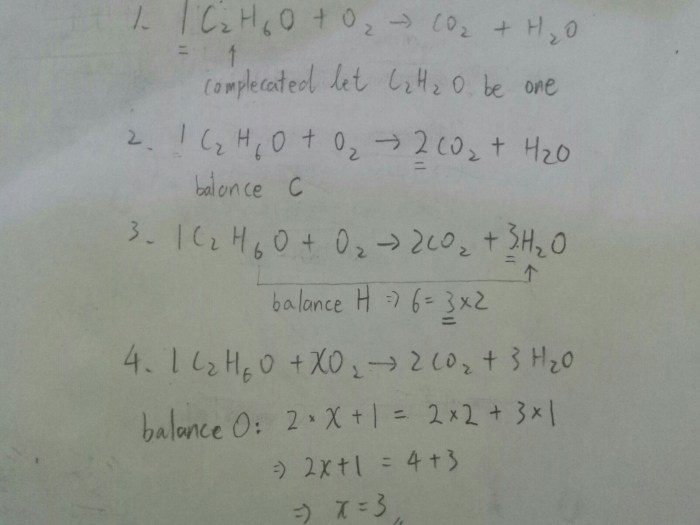 1. 1 C₂H₆O + O₂ → CO₂ + H₂O
complecated let C₂H₂O be one
2. 1 C₂H₆O + O₂ → 2CO₂ + H₂O
balance C
3- 1C₂H₆O + O₂ → 2CO₂ + 3H₂O
balance H ⇒ 6 = 3×2
4. 1 C₂H₆O + XO₂ → 2CO₂ + 3H₂O
balance O: 2 × X + 1 = 2×2 + 3×1
⇒ 2x+1 = 4+3
⇒ x = 3